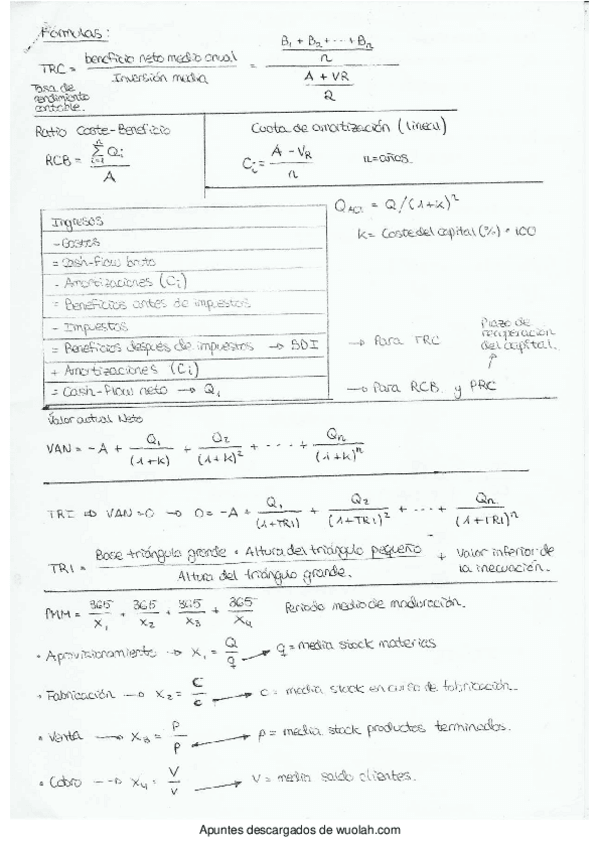 Fórmulas:
TRC = beneficio neto medio anual / Inversión media = (B₁ + B₂ + ··· + Bₙ / n) / (A + VR / 2)
Tasa de
rendimiento
contable.
Ratio Coste-Beneficio
RCB = Σ Qᵢ / A
n
i=1
Cuota de amortización (lineal)
Cᵢ = A - VR / n
n = años.
Ingresos
- Gastos
= Cash-flow bruto
- Amortizaciones (Cᵢ)
= Beneficios antes de impuestos
- Impuestos
= Beneficios después de impuestos → BDI
+ Amortizaciones (Cᵢ)
= Cash-flow neto → Qᵢ
Q act = Q/(1+k)²
k = Coste del capital (%) ÷ 100
→ Para TRC
Plazo de
recuperación
del capital.
→ Para RCB y PRC
Valor actual Neto
VAN = -A + Q₁ / (1+k) + Q₂ / (1+k)² + ···· + Qₙ / (1+k)ⁿ
TRI ⇒ VAN=0 → 0 = -A + Q₁ / (1+TRI) + Q₂ / (1+TRI)² + ··· + Qₙ / (1+TRI)ⁿ
TRI = Base triángulo grande · Altura del triángulo pequeño / Altura del triángulo grande. + Valor inferior de
la inecuación.
PMM = 365 / X₁ + 365 / X₂ + 365 / X₃ + 365 / X₄ Periodo medio de maduración.
• Aprovisionamiento → X₁ = Q / q → q = media stock materias
• Fabricación → X₂ = C / c → c = media stock en curso de fabricación.
• Venta → X₃ = P / p → p = media stock productos terminados.
• Cobro → X₄ = V / v → v = media saldo clientes.
Apuntes descargados de wuolah.com